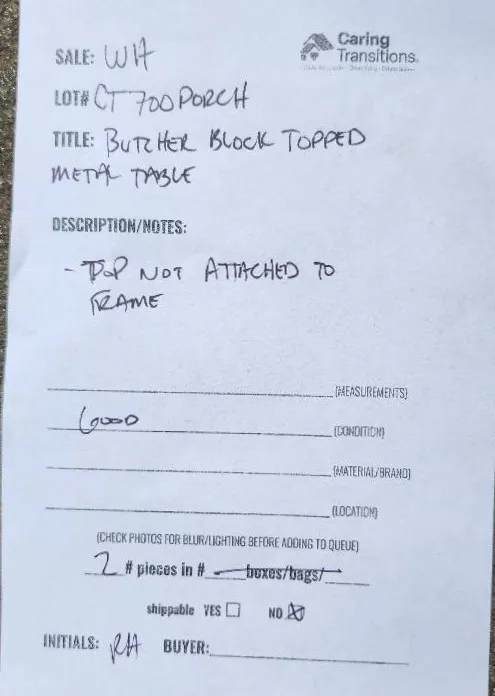 Caring
Transitions.
SALE: WH
LOT# CT 700 PORCH
TITLE: BUTCHER BLOCK TOPPED
METAL TABLE
DESCRIPTION/NOTES:
- TOP NOT ATTACHED TO
FRAME
(MEASUREMENTS)
GOOD (CONDITION)
(MATERIAL/BRAND)
(LOCATION)
(CHECK PHOTOS FOR BLUR/LIGHTING BEFORE ADDING TO QUEUE)
2 # pieces in # boxes/bags/
shippable YES ☐ NO ☒
INITIALS: RH BUYER: